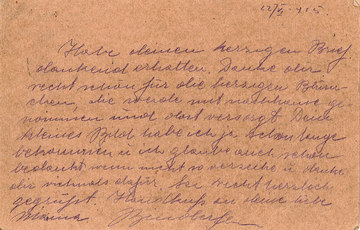 12/5 915
Habe deinen herzigen Brief
dankend erhalten. Danke dir
recht schön für die herzigen Blüm-
chen, die werde mit nachhause ge-
nommen und dort versorgt. Dein
kleines Bild habe ich ja schon lange
bekommen u ich glaube auch schon
bedankt wenn nicht so verzeihe u danke
dir vielmals dafür. Sei recht herzlich
gegrüßt. Handkuss an deine liebe
Mama